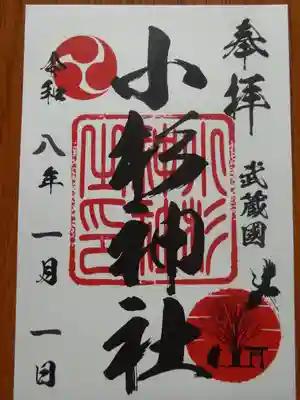 奉拝
武蔵國
小杉神社
令和
八年
一月
一日